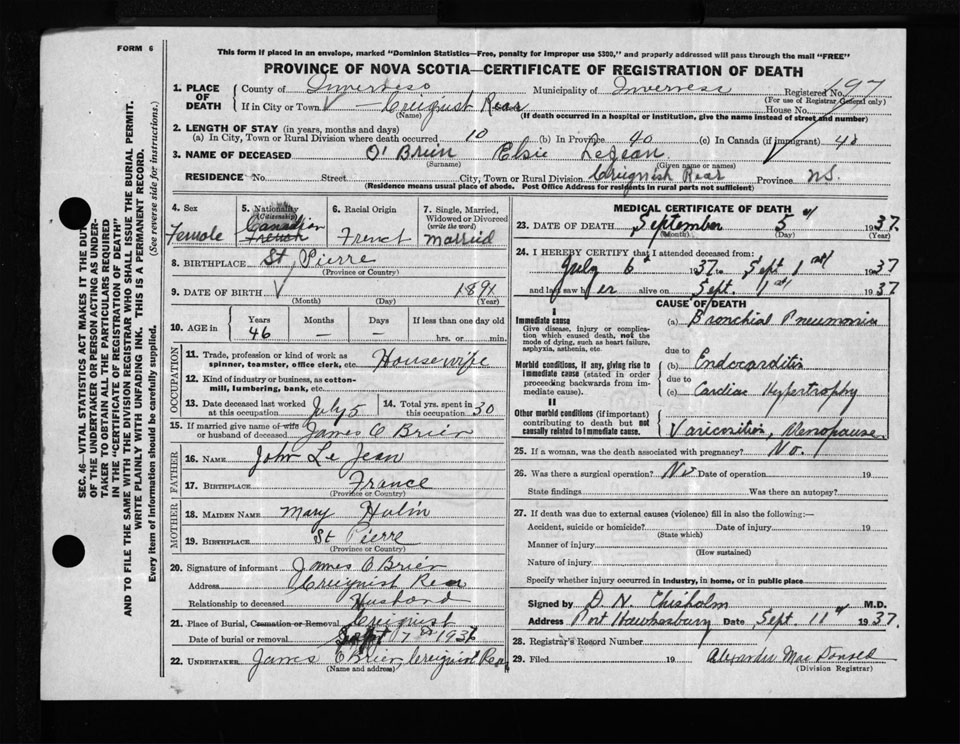 FORM 6
This form if placed in an envelope, marked "Dominion Statistics—Free, penalty for improper use $300," and properly addressed will pass through the mail "FREE"
PROVINCE OF NOVA SCOTIA—CERTIFICATE OF REGISTRATION OF DEATH
SEC. 46—VITAL STATISTICS ACT MAKES IT THE DUTY
OF THE UNDERTAKER OR PERSON ACTING AS UNDER-
TAKER TO OBTAIN ALL THE PARTICULARS REQUIRED
IN THE "CERTIFICATE OF REGISTRATION OF DEATH"
AND TO FILE THE SAME WITH THE DIVISION REGISTRAR WHO SHALL ISSUE THE BURIAL PERMIT.
WRITE PLAINLY WITH UNFADING INK. THIS IS A PERMANENT RECORD.
Every item of information should be carefully supplied. (See reverse side for instructions.)
1. PLACE OF DEATH County of Inverness Municipality of Inverness Registered No. 197
(For use of Registrar General only)
If in City or Town Creignist Rear House No.
(Name) (If death occurred in a hospital or institution, give the name instead of street and number)
2. LENGTH OF STAY (in years, months and days)
(a) In City, Town or Rural Division where death occurred 10 (b) In Province 40 (c) In Canada (if immigrant) 40
3. NAME OF DECEASED O'Brien Elsie LeJean
(Surname) (Given name or names)
RESIDENCE No. Street City, Town or Rural Division Creignish Rear Province N.S.
(Residence means usual place of abode. Post Office Address for residents in rural parts not sufficient)
4. Sex Female
5. Nationality (Citizenship) Canadian French
6. Racial Origin French
7. Single, Married, Widowed or Divorced (write the word) Married
8. BIRTHPLACE St Pierre
(Province or Country)
9. DATE OF BIRTH 1891
(Month) (Day) (Year)
10. AGE in Years Months Days If less than one day old
46 – hrs. or min.
OCCUPATION
11. Trade, profession or kind of work as spinner, teamster, office clerk, etc. Housewife
12. Kind of industry or business, as cotton-mill, lumbering, bank, etc.
13. Date deceased last worked at this occupation July 5 14. Total yrs. spent in this occupation 30
15. If married give name of wife or husband of deceased James O Brien
FATHER
16. NAME John Le Jean
17. BIRTHPLACE France
(Province or Country)
MOTHER
18. MAIDEN NAME Mary Holin
19. BIRTHPLACE St Pierre
(Province or Country)
20. Signature of informant James O Brien
Address Creignist Rear
Relationship to deceased Husband
21. Place of Burial, Cremation or Removal Creignist
Date of burial or removal Sept 7 1937
22. UNDERTAKER James O Brien, Creignist Rear
(Name and address)
MEDICAL CERTIFICATE OF DEATH
23. DATE OF DEATH September 5th 1937
(Month) (Day) (Year)
24. I HEREBY CERTIFY that I attended deceased from:
July 6th 1937 to Sept 1st 1937
and last saw her alive on Sept. 1st 1937
CAUSE OF DEATH
I
Immediate cause (a) Bronchial Pneumonia
Give disease, injury or complication which caused death, not the mode of dying, such as heart failure, asphyxia, asthenia, etc.
due to
Morbid conditions, if any, giving rise to immediate cause (stated in order proceeding backwards from immediate cause). (b) Endocarditis
due to
(c) Cardiac Hypertrophy
II
Other morbid conditions (if important) contributing to death but not causally related to immediate cause. Varicosities, Menopause
25. If a woman, was the death associated with pregnancy? No.
26. Was there a surgical operation? No Date of operation 19
State findings Was there an autopsy?
27. If death was due to external causes (violence) fill in also the following:—
Accident, suicide or homicide? Date of injury 19
(State which)
Manner of injury
(How sustained)
Nature of injury
Specify whether injury occurred in industry, in home, or in public place
Signed by D. N. Chisholm M.D.
Address Port Hawkesbury Date Sept. 11th 1937.
28. Registrar's Record Number
29. Filed 19 Alexander MacDonald
(Division Registrar)